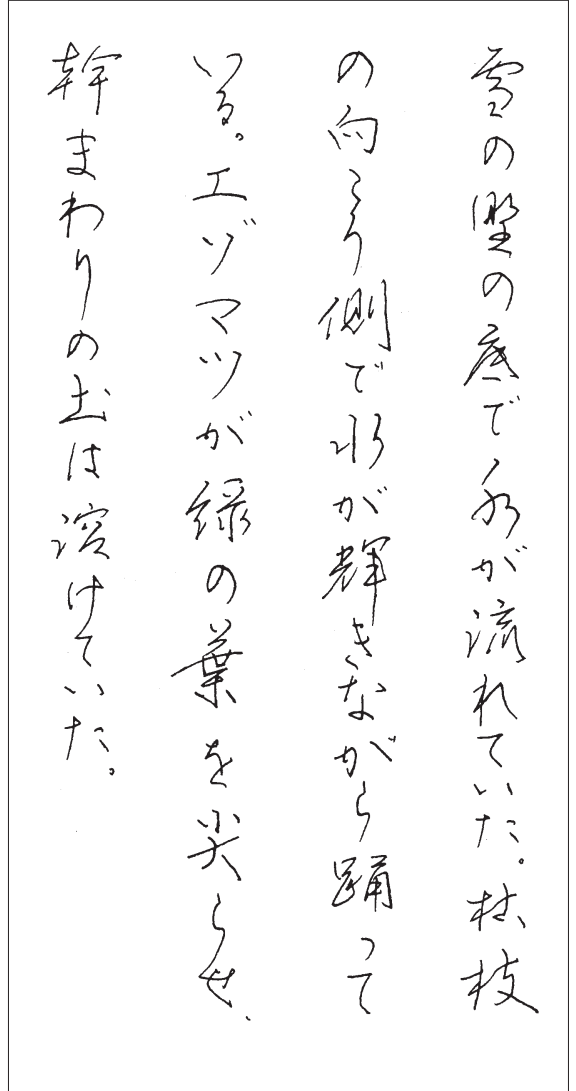 雪の壁の底で水が流れていた。枯枝
の向こう側で水が輝きながら踊って
いる。エゾマツが緑の葉を尖らせ、
幹まわりの土は溶けていた。